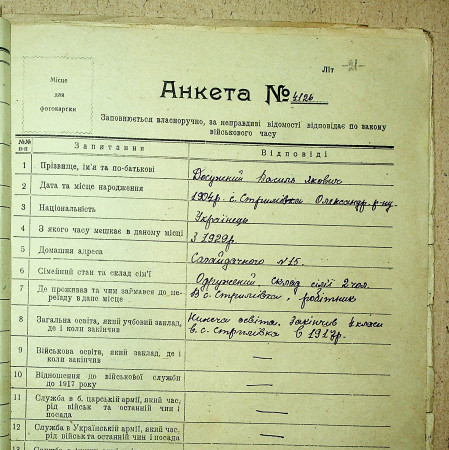 Літ -21-
Місце
для
фотокартки
Анкета № 4126
Заповнюється власноручно, за неправдиві відомості відповідає по закону
військового часу
№№
п-п
Запитання
Відповіді
1 Прізвище, ім'я та по-батькові
Василь Якович
2 Дата та місце народження
1904р. с. Стрилівка Олександр. р-ну
3 Національність
Українець
4 З якого часу мешкає в даному місці
З 1929р.
5 Домашня адреса
Сагайдачного №15
6 Сімейний стан та склад сім'ї
Одружений. склад сім'ї 2 чол.
7 Де проживав та чим займався до пе-
реїзду в дане місце
В с. Стрилівка, робітник
8 Загальна освіта, який учбовий заклад,
де і коли закінчив
освіта. Закінчив класи
в с. Стрилівка в 1917р.
9 Військова освіта, який заклад, де і
коли закінчив —
10 Відношення до військової служби
до 1917 року —
11 Служба в б. царській армії, який час,
рід військ та останній чин і
посада —
12 Служба в Українській армії, який час,
рід військ та останній чин і посада —
13